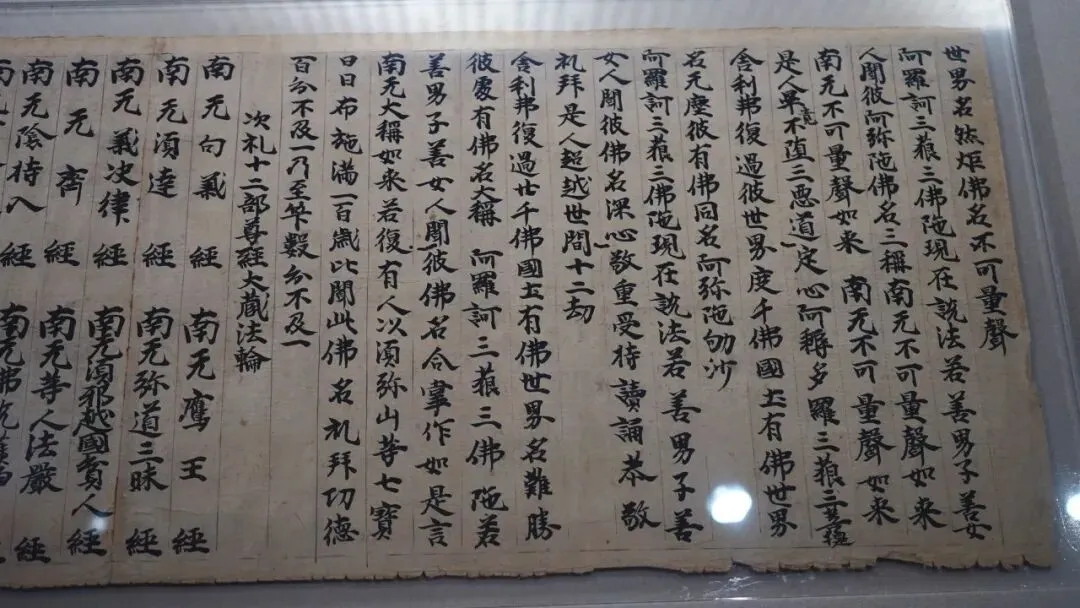 世界名然炬佛名不可量聲
阿羅訶三藐三佛陁現在說法若善男子善女
人聞彼阿弥陁佛名三稱南无不可量聲如来
南无不可量聲如来　南无不可量聲如来
是人畢竟不堕三惡道定心阿耨多羅三藐三菩提
舍利弗復過彼世界度千佛國土有佛世界
名无塵彼有佛同名阿弥陁劬沙
阿羅訶三藐三佛陁現在說法若善男子善
女人聞彼佛名深心敬重受持讀誦恭敬
礼拜是人超越世間十二劫
舍利弗復過廿千佛國土有佛世界名難勝
彼處有佛名大稱　阿羅訶三藐三佛陁若
善男子善女人聞彼佛名合掌作如是言
南无大稱如来若復有人以須弥山等七寶
日日布施滿一百歲比聞此佛名礼拜功德
百分不及一乃至筭數分不及一
次礼十二部尊經大藏法輪
南无句義經　南无鷹王經
南无須達經　南无弥道三昧經
南无義决律經　南无須邪越國貧人經
南无齊經　南无等人法嚴經
南无陰持入經　南无佛